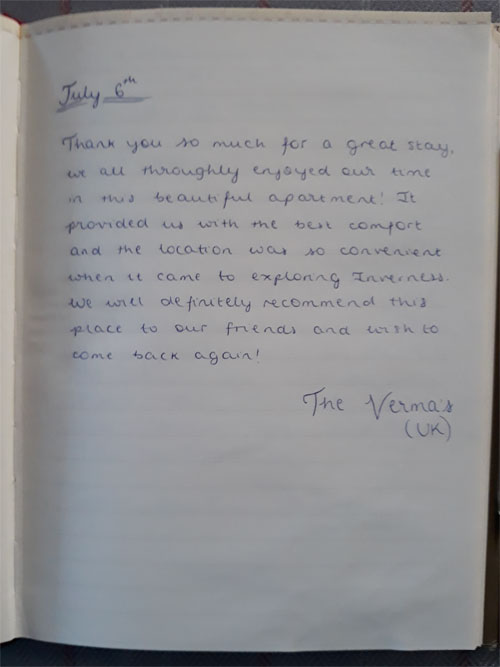 July 6th
Thank you so much for a great stay,
we all throughly enjoyed our time
in this beautiful apartment! It
provided us with the best comfort
and the location was so convenient
when it came to exploring Inverness.
We will definitely recommend this
place to our friends and wish to
come back again!
The Verma's
(UK)